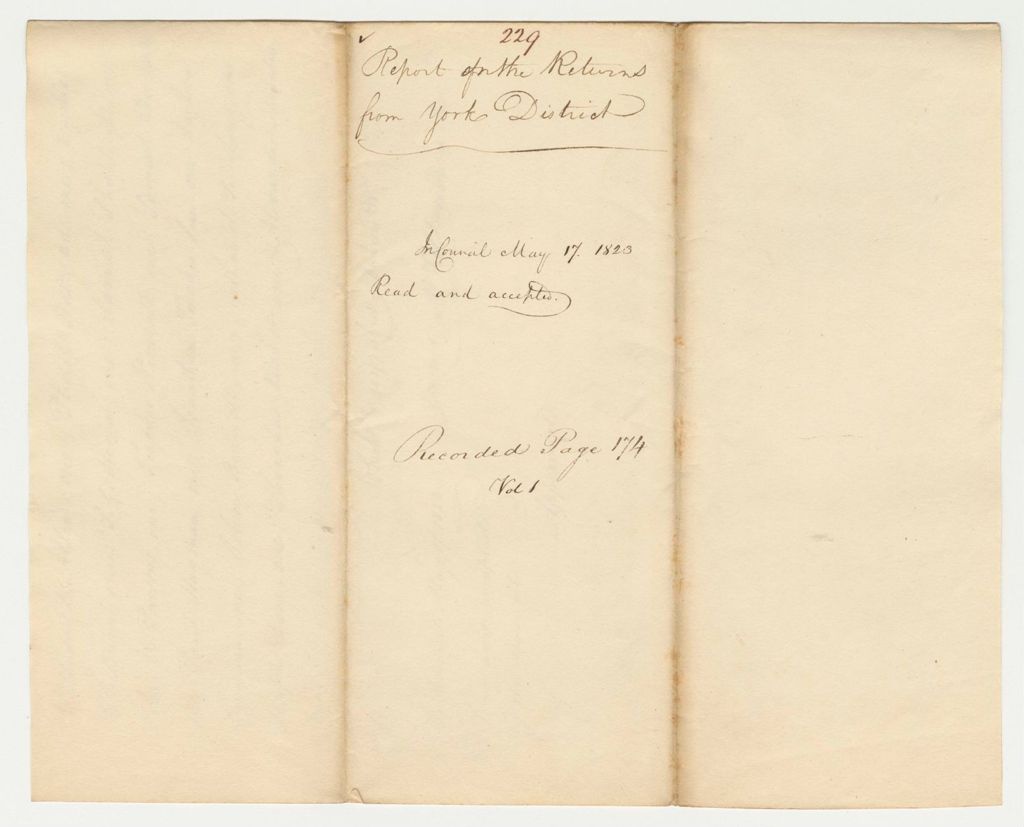 229
Report on the Returns
from York District
In Council May 17. 1823
Read and accepted.
Recorded Page 174
Vol 1